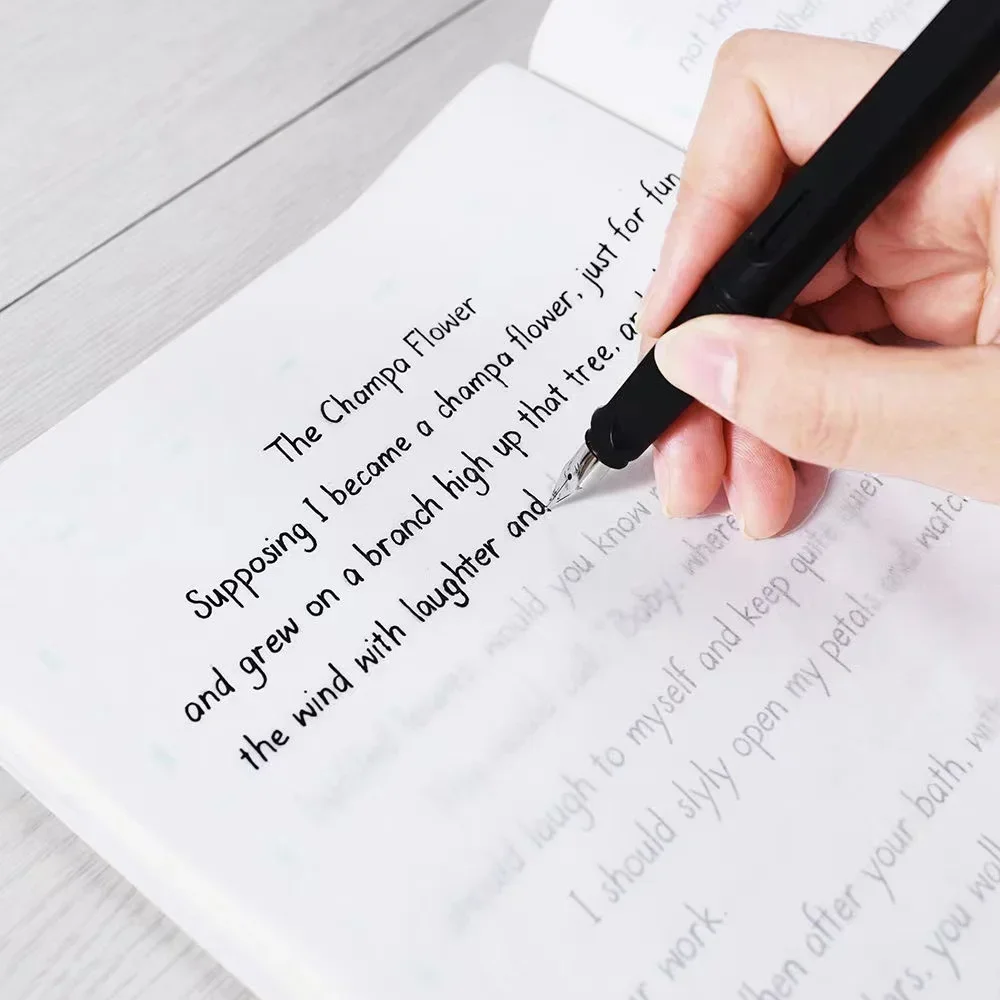 not know
The Champa Flower
Supposing I became a champa flower, just for fun
and grew on a branch high up that tree, and
the wind with laughter and
would you know
Baby, where
should laugh to myself and keep quite quiet
I should slyly open my petals and watch
when after your bath, with
work.
you walk